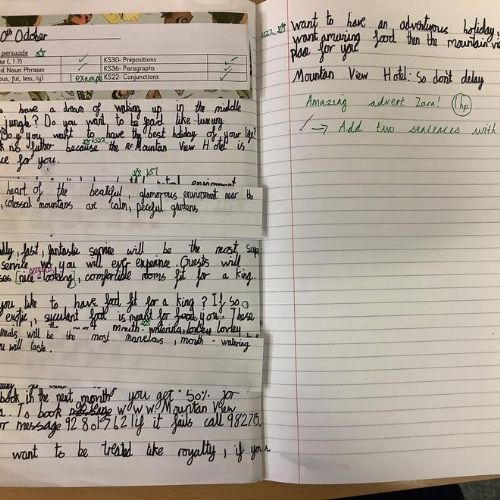 0th October
persuade
te (. ! ?)
KS30- Prepositions
d Noun Phrases
KS36- Paragraphs
ous, ful, less, ly)
example
KS22- Conjunctions
have a dream of waking up in the middle
jungle? Do you want to be like luxury
Do you want to have the best holiday of your
no further because the Mountain View Hotel is
ce for you.
heart of the beatiful, glamorous enviroment near the
colossal mountains are calm, peceful gardens
dly, fast, fantastic service will be the most
service you will ever experience. Guests will
nice-looking, comfortible rooms fit for a king.
you like to have food fit for a king? If so
exotic, succulent food is for you. These
meals will be the most marvelous, mouth-watering
ou will taste.
book in the next month you get 50% for
To book www. Mountain View
or message 92801762 if it fails call 98275
want to be treated like royalty, if you
want to have an adventurous holiday
want amazing food then the mountain
place for you
Mountain View Hotel: so don't delay
Amazing advert Zara! 1hp
→ Add two sentences with